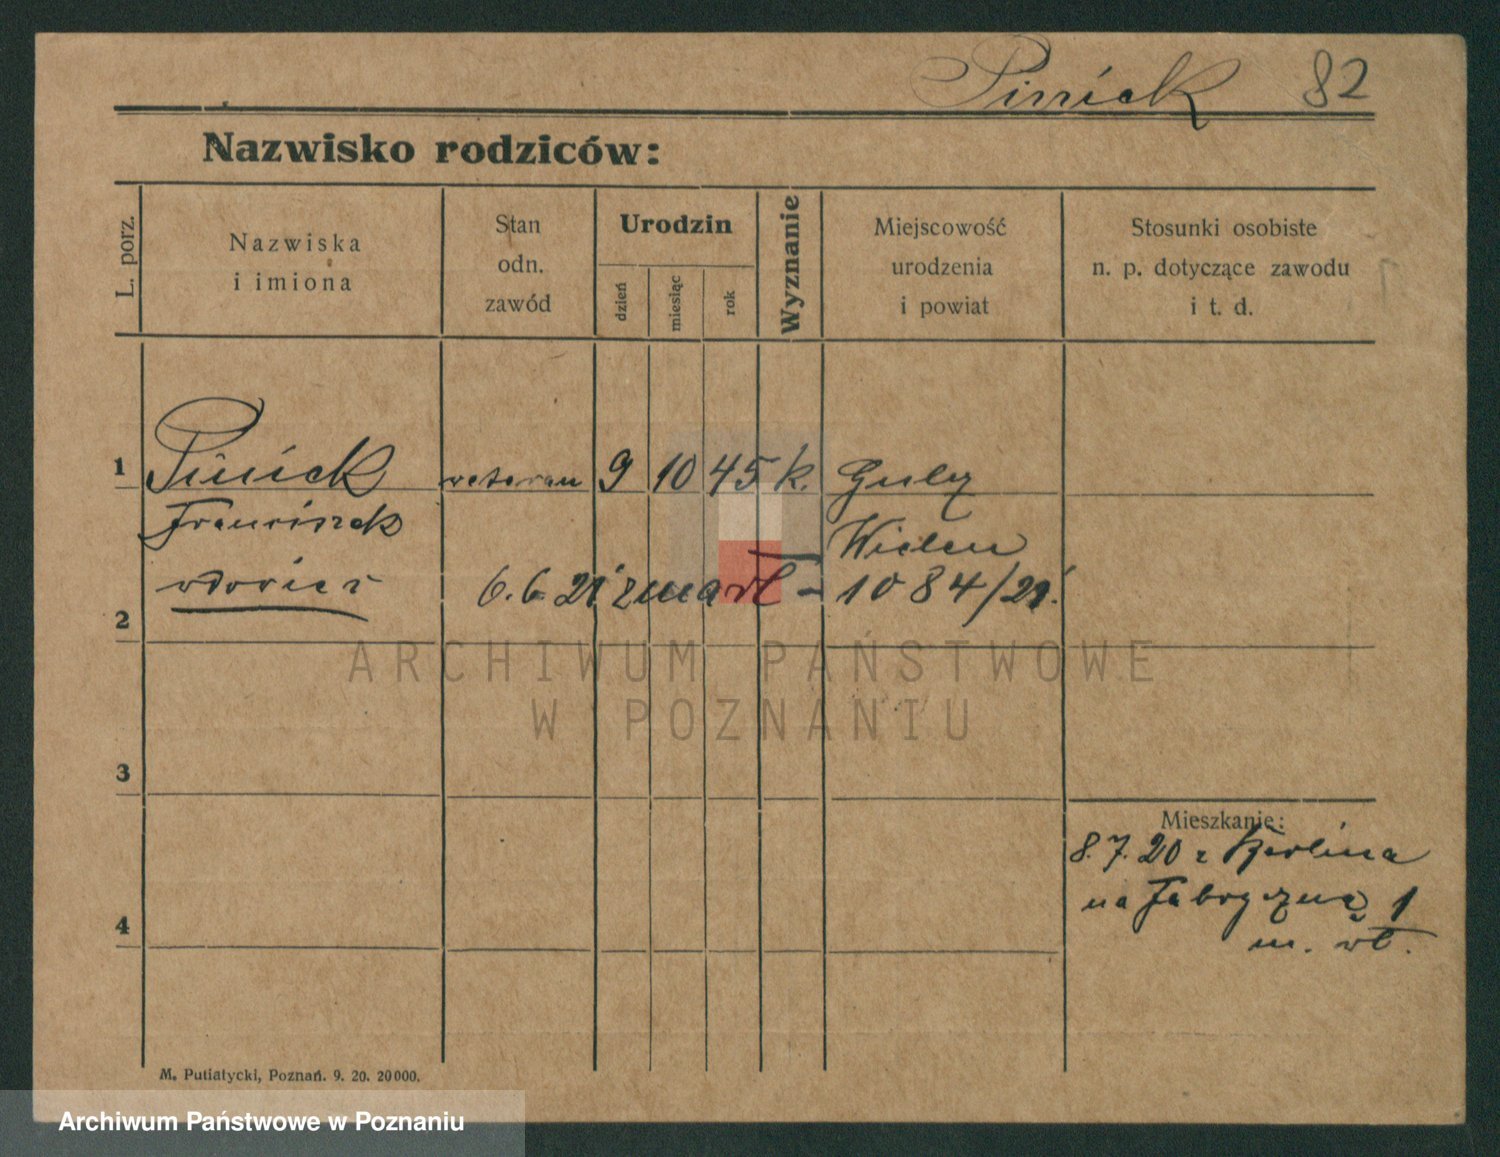 Piniek 82
Nazwisko rodziców:
L. porz.
Nazwiska
i imiona
Stan
odn.
zawód
Urodzin
dzień
miesiąc
rok
Wyznanie
Miejscowość
urodzenia
i powiat
Stosunki osobiste
n. p. dotyczące zawodu
i t. d.
1 Piniek weteran 9 10 45 k. Gulcz
Franciszek Wieleń
wdowiec 6.6.21 zmarł - 1084/21.
2
ARCHIWUM PAŃSTWOWE
W POZNANIU
3
Mieszkanie:
8.7.20 z Berlina
na Fabryczną 1
4
m. wł.
M. Putiatycki, Poznań. 9. 20. 20000.
Archiwum Państwowe w Poznaniu